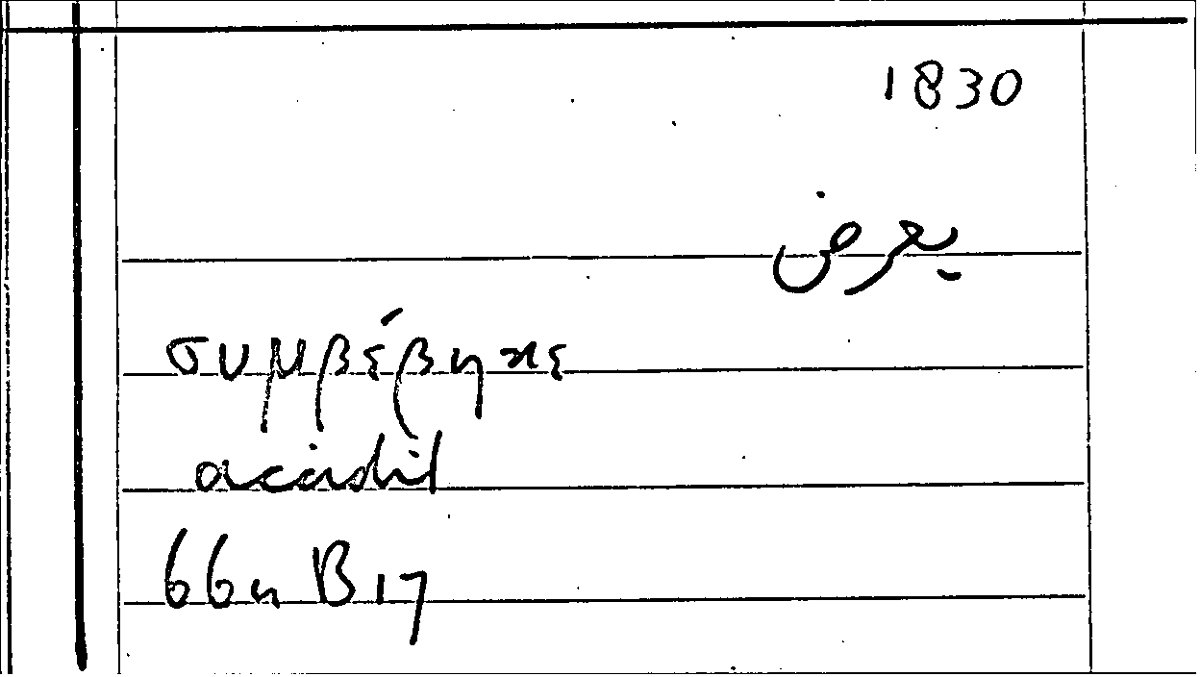 1830
يعرض
συμβέβηκε
accidit
66a B 17